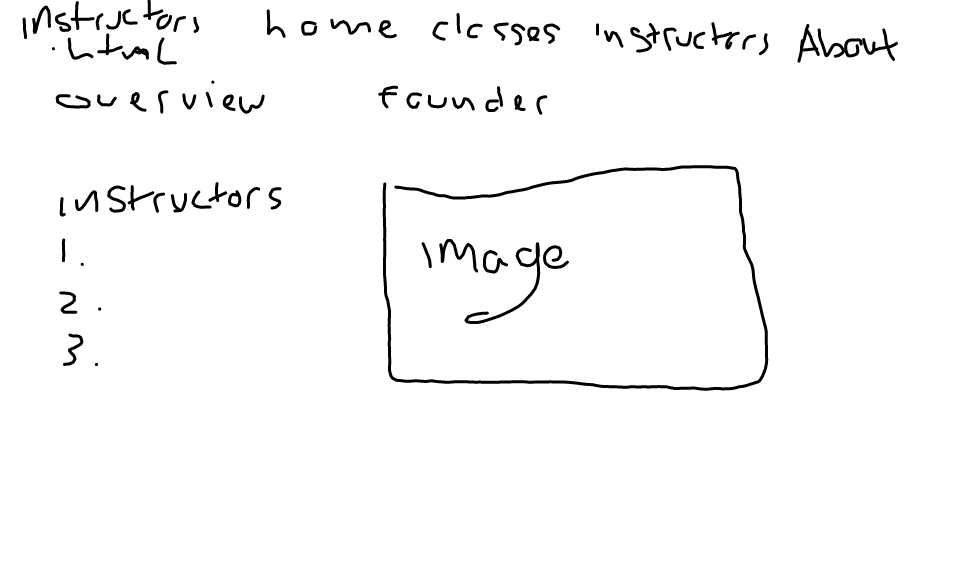 instructors home classes instructors About
.html
overview founder
instructors
1.
image
2.
3.